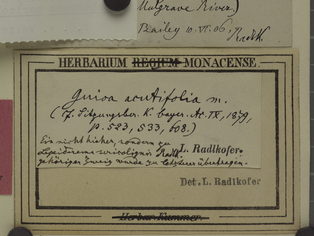 Mulgrave River)
Bailey n. VI. 06, Radlk.
HERBARIUM REGIUM MONACENSE
Guioa acutifolia m.
(cf. Sitzungsber. K. bayer. Ac. IX, 1879,
p. 523, 533, 608.)
Ein nicht hieher, sondern zu
Lepiderema sericolignis Radlk.
gehöriger Zweig wurde zu letzterer übertragen.
L. Radlkofer.
Det. L. Radlkofer
Herbar Kummer.